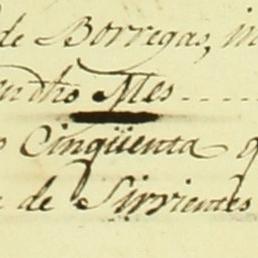 de Borregas, in
en dho Mes ----
Cinqüenta q
de Sirvientes